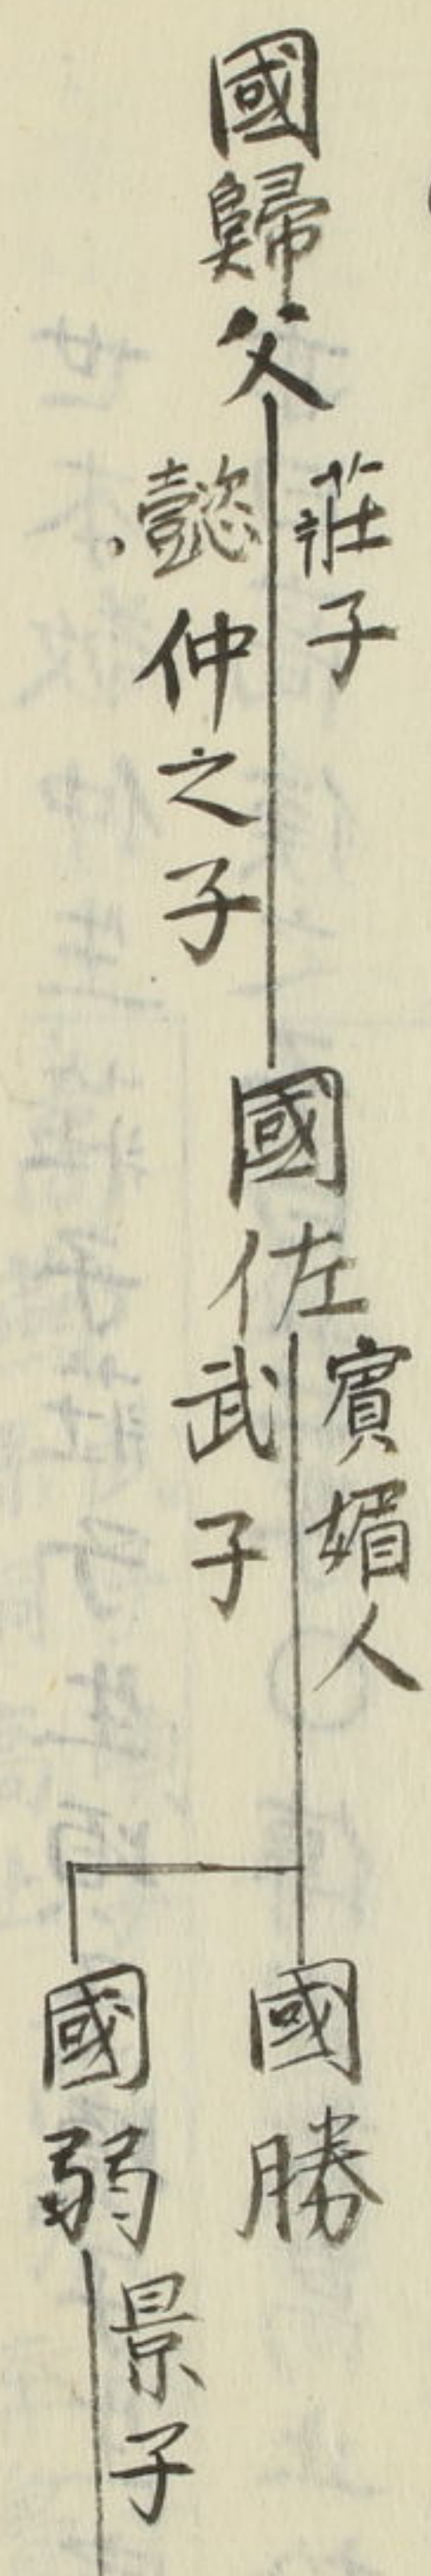 國歸父
莊子
懿仲之子
國佐
賓媚人
武子
國勝
國弱
景子